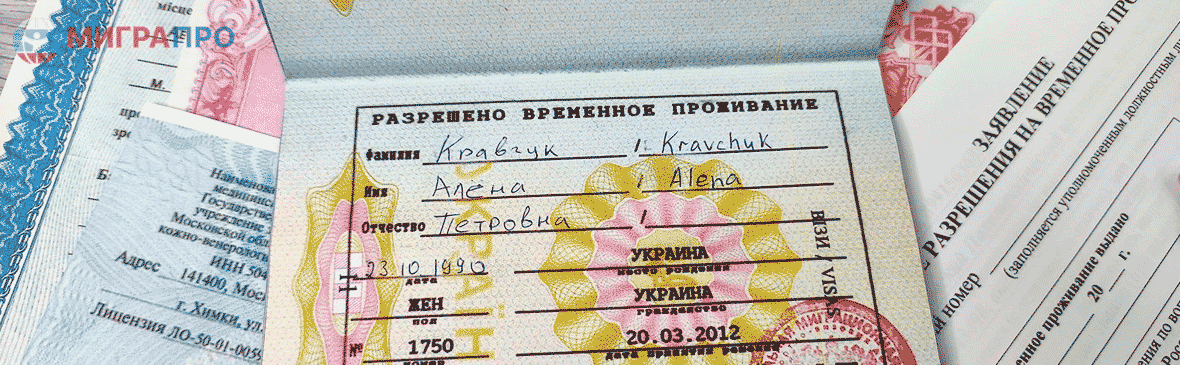 МИГРАПРО
місце
М.
Наименова
медицинск
Государстве
учреждение
Московской обл
кожно-венеролог
ИНН 504
Адрес 141400, Мос
г. Химки, ул.
Лицензия ЛО-50-01-0059
РАЗРЕШЕНО ВРЕМЕННОЕ ПРОЖИВАНИЕ
Фамилия Кравчук / Kravchuk
Имя Алена / Alena
Отчество Петровна /
23.10.1990 УКРАИНА
дата место рождения
ЖЕН УКРАИНА
пол гражданство
№ 1750 20.03.2012
номер дата принятия решения
ВІЗИ / VISAS
МИГРАЦИОН
ЗАЯВЛЕНИЕ
РАЗРЕШЕНИЯ НА ВРЕМЕННОЕ ПРО
(заполняется уполномоченным должностным
номер
енное проживание выдано
20 г.